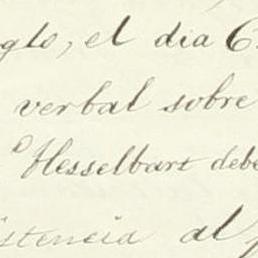 glo, el dia 6
verbal sobre
D Hesselbart debe
istencia al